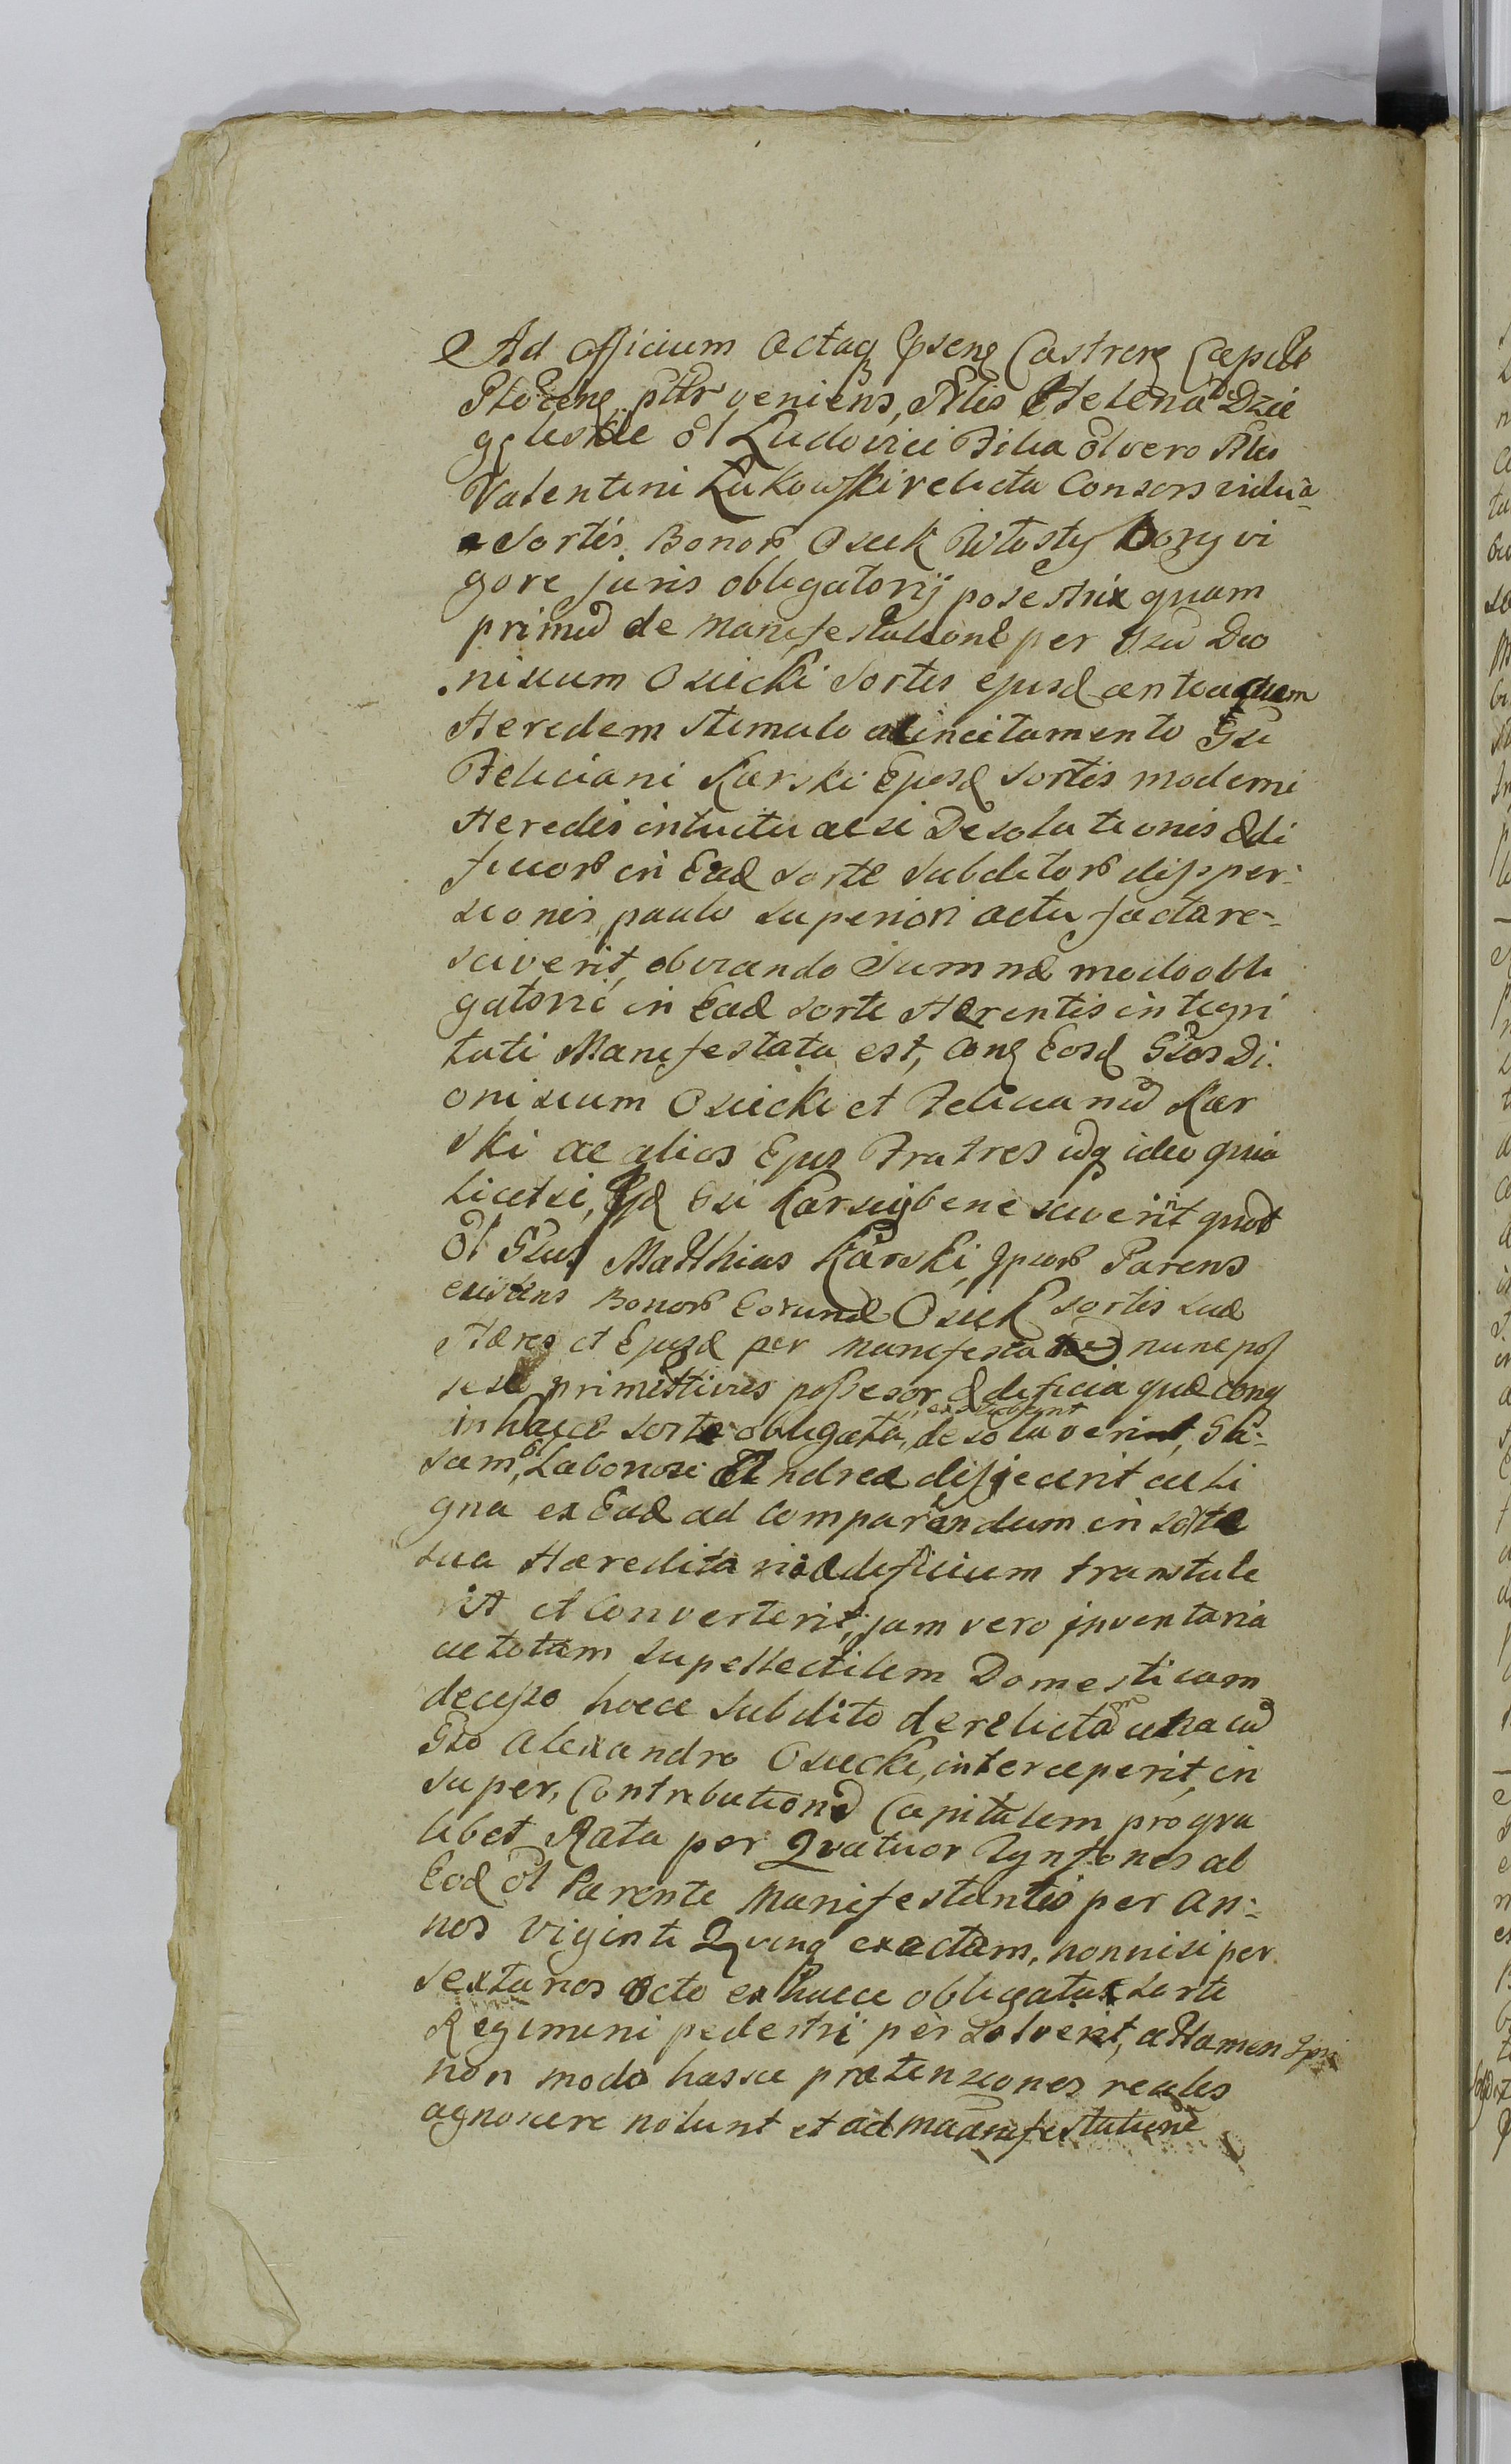 Ad Officium Actaq Castren Capitl
Plocen pttr veniens, Nlis Helena Dzie
Ludovici Filia ol vero Nlis
Valentini Łukowski relicta Consors vidua
Sortis Bonor Osiek Włosty vi
gore juris obligatorij posestrix quam
primu de Manifestatione per Dio
nisium Osiecki Sortis ejusd antiquum
Heredem stimulo incitamento
Feliciani Karski Ejusd Sortis moderni
Heredis intuitu acsi Desolationis Ædi
ficiorum in Ead Sorte Subditor disper-
sionis, paulo Superiori actu facta re-
sciverit, obviando Summæ modo obli
gatorio in Ead Sorte Hærentis integri
tati Manifestata est, Eosd Gsos Di-
onisium Osiecki et Felicianu Kar
ski ac alios Ejus Fratres idq ideo quia
licet si, Karscij bene sciverint quod
ol Matthias Karski, Ipsor Parens
existens Bonor Eorund Osiek Sortis suæ
Hæres et Ejusd per manifesta nunc pos
primitivus possesor Ædificia quæ
in hacce sorte obligata, extabant desolaverint,
sam, ol Laboriosi Andreæ disjecerit ac li
gna ex Ead ad comparandum in sorte
sua Hæreditaria ædificium transtule
rit et Converterit, jam vero inventaria
ac totam supellectilem Domesticam
decesso hocce subdito derelictam una cu
Gso Alexandro Osiecki, interceperit, in
super, Contributione Capitalem pro qua
libet Rata per Quatuor Tynfones ab
Eod ol Parente Manifestantis per An-
nos Viginti Quinq exactam, nonnisi per
sextarios octo ex hacce obligata sorte
Regimini pedestri per solverit, attamen Ipsi
non modo hasce prætensiones reales
agnoscere nolunt et ad manifestatione